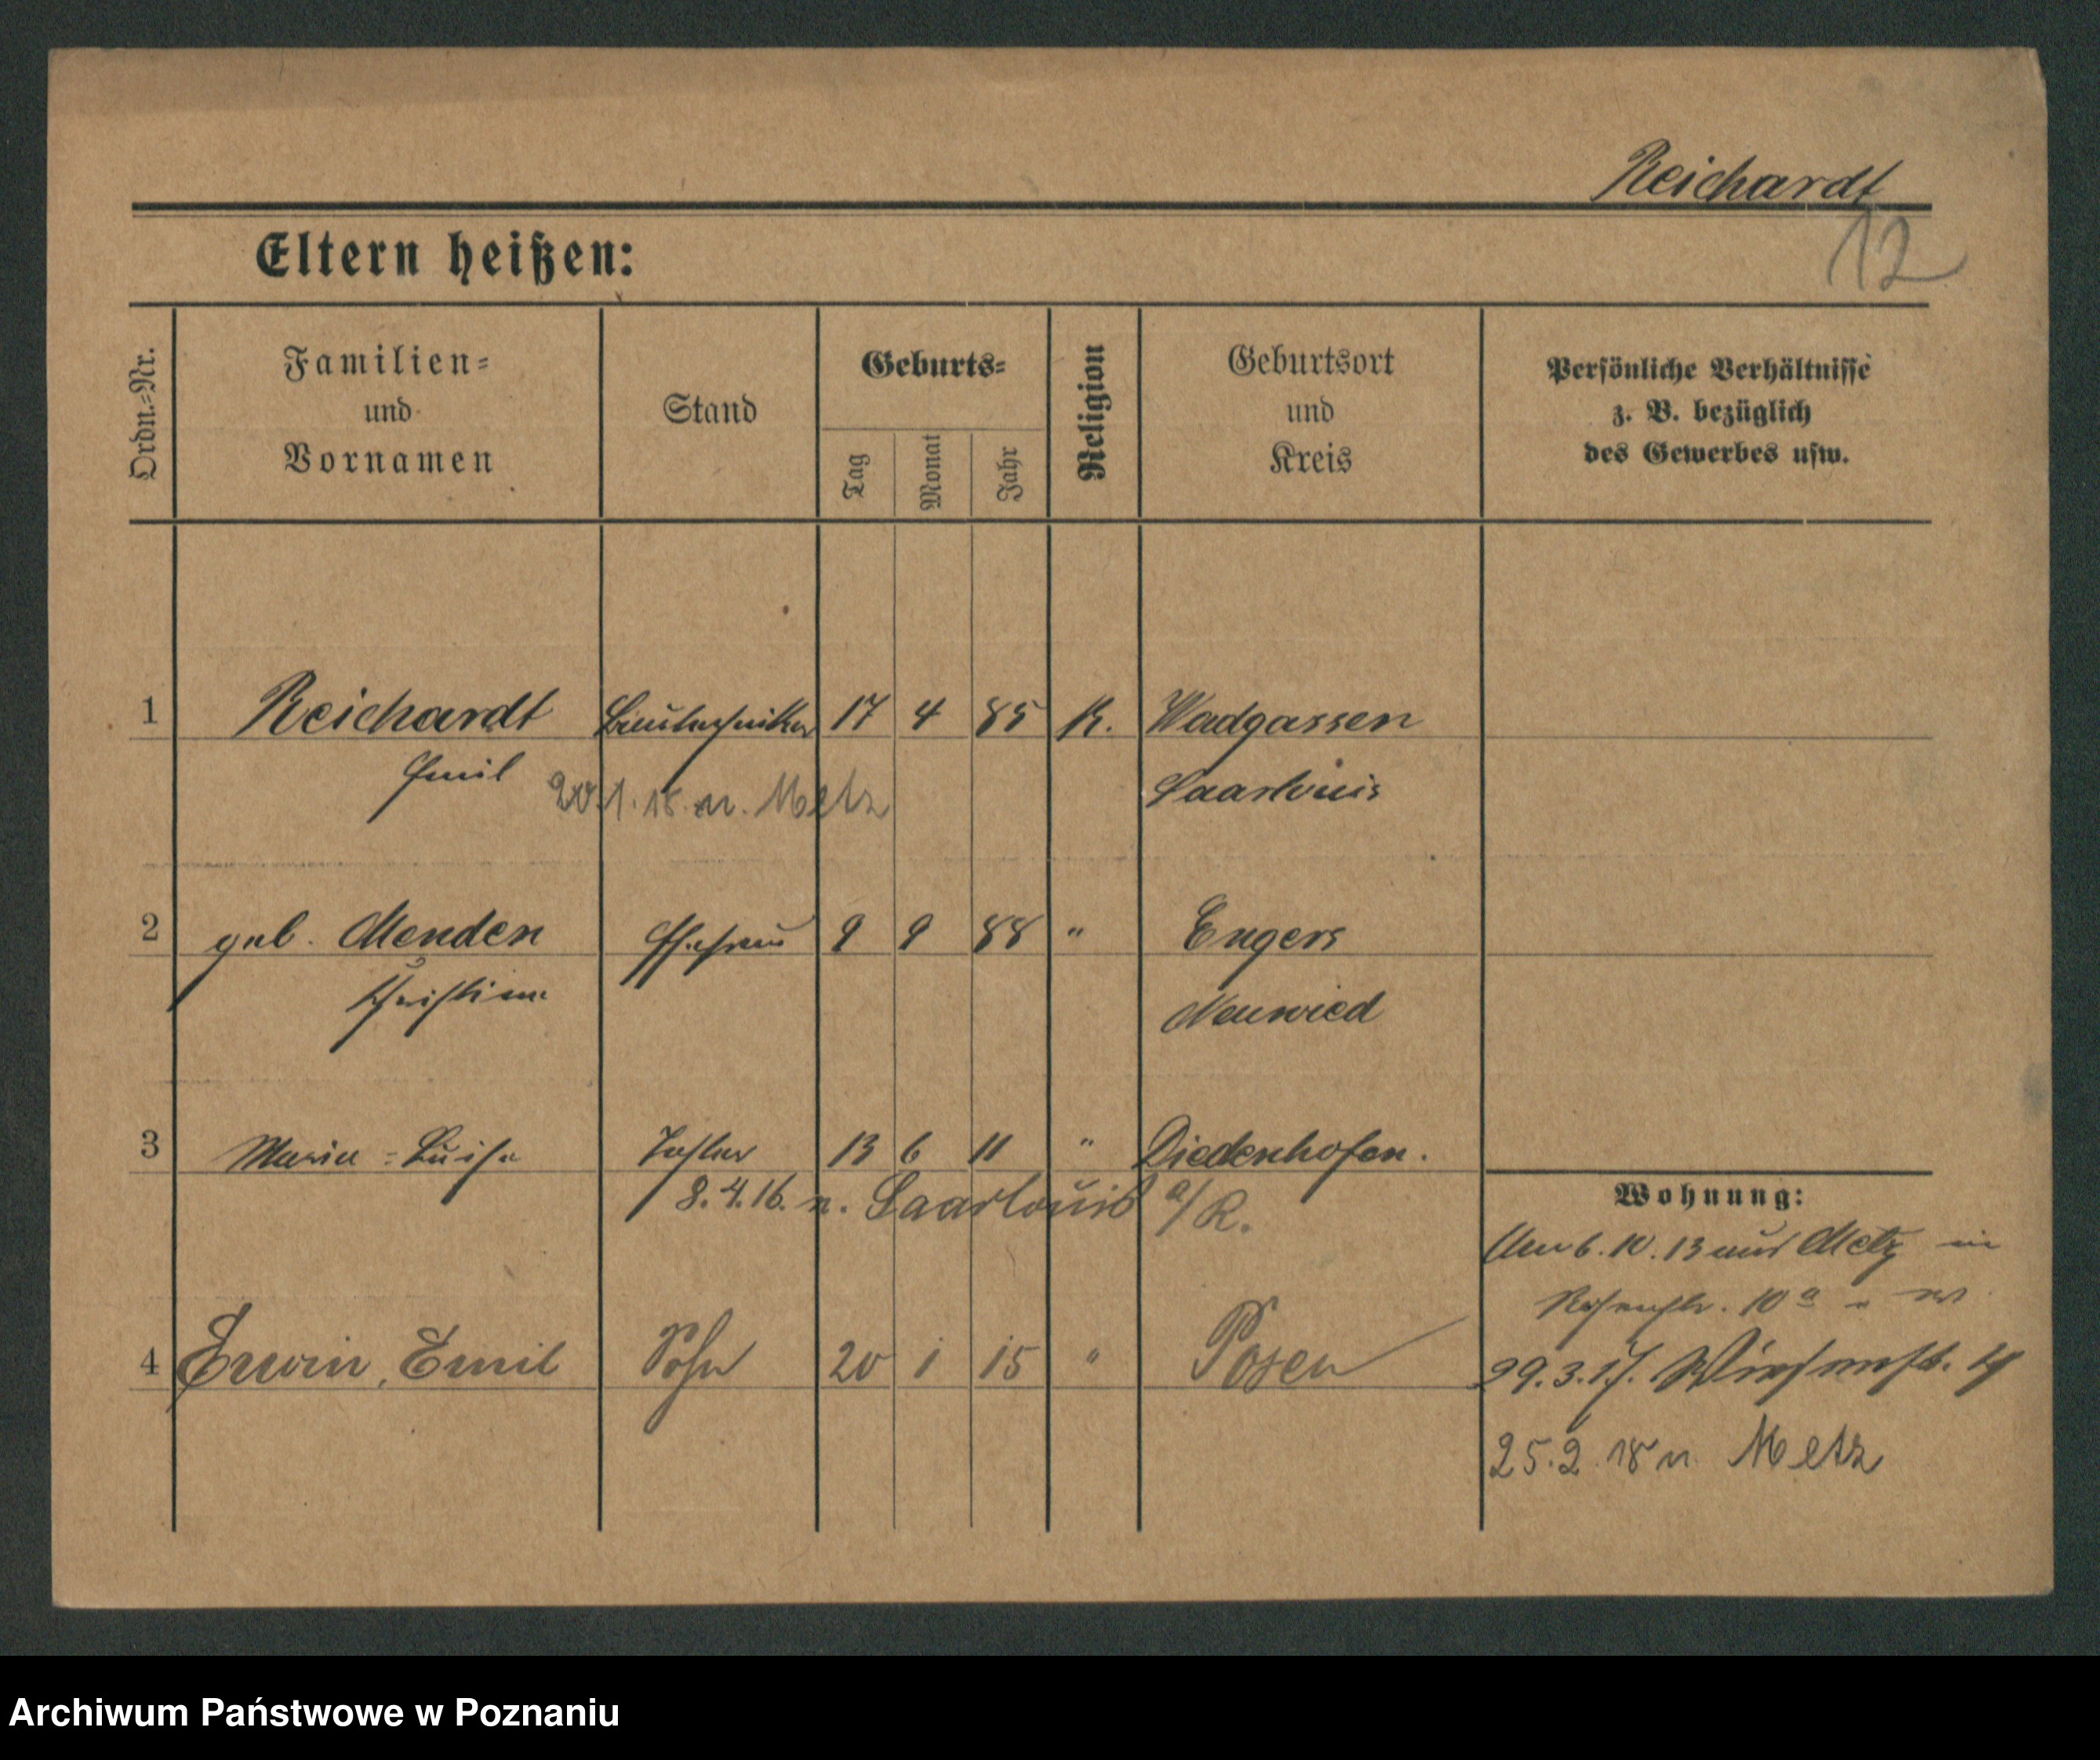 Reichardt
12
Eltern heißen:
Ordn.=Nr.
Familien=
und
Vornamen
Stand
Geburts=
Tag
Monat
Jahr
Religion
Geburtsort
und
Kreis
Persönliche Verhältnisse
z. B. bezüglich
des Gewerbes usw.
1 Reichardt Bautechniker 17 4 85 K. Wadgassen
Emil Saarlouis
20.1.18. n. Metz
2 geb. Menden Ehefrau 9 9 88 " Engers
Christine Neuwied
3 Maria = Luise Tochter 13 6 11 " Diedenhofen.
8.4.16. n. Saarlouis a/R.
Wohnung:
6.10.13 aus Metz in
10a
4 Erwin, Emil Sohn 20 1 15 " Posen
29.3.17.
25.2.18 n. Metz
Archiwum Państwowe w Poznaniu